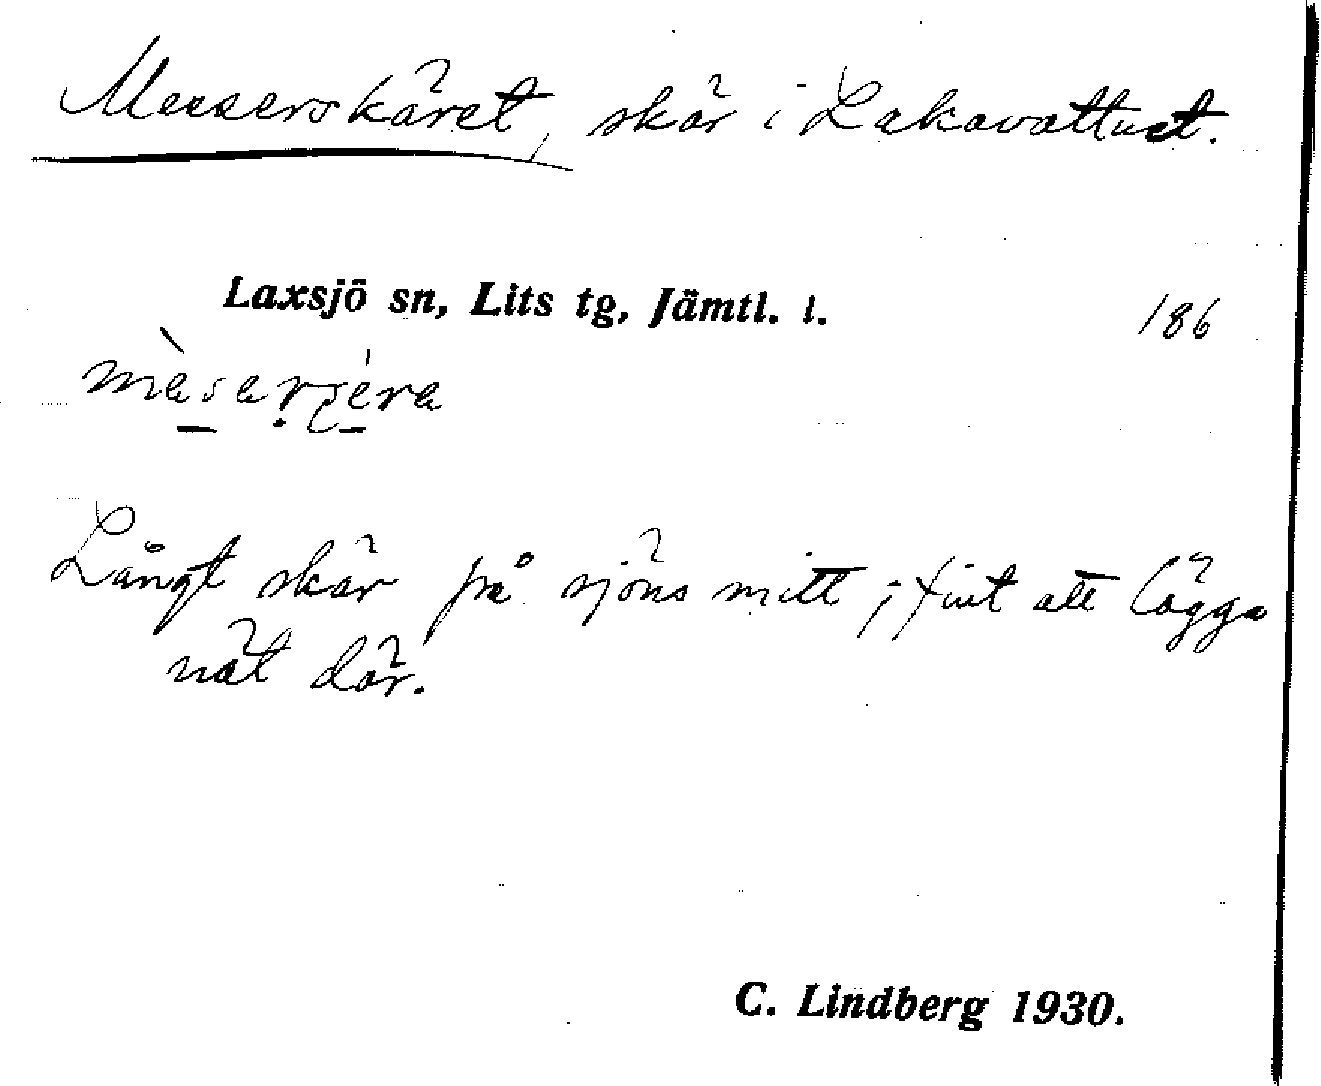 Meeserskäret, skär i Lakavattnet.
Laxsjö sn, Lits tg, Jämtl. l.
186
Långt skär på sjöns mitt; fint att lägga
nät där.
C. Lindberg 1930.